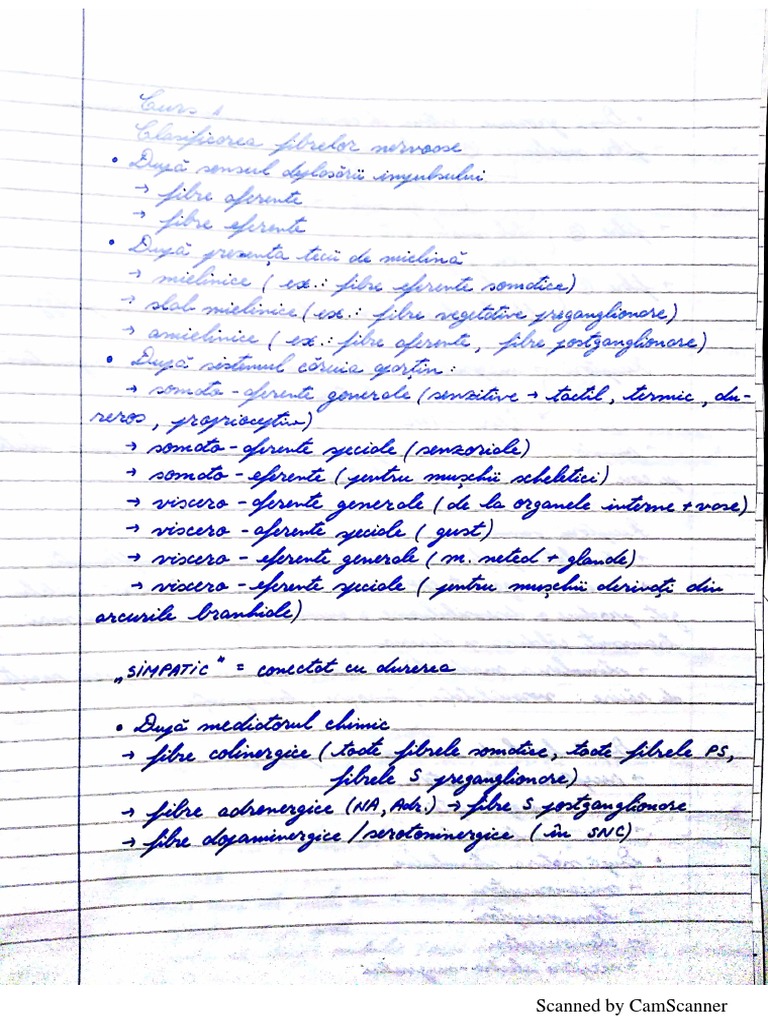 Curs 1
Clasificarea fibrelor nervoase
• După sensul deplasării impulsului
→ fibre aferente
→ fibre eferente
• După prezența tecii de mielină
→ mielinice (ex.: fibre eferente somatice)
→ slab mielinice (ex.: fibre vegetative preganglionare)
→ amielinice (ex.: fibre aferente, fibre postganglionare)
• După sistemul căruia aparțin:
→ somato-aferente generale (senzitive → tactil, termic, du-
reros, proprioceptiv)
→ somato-aferente speciale (senzoriale)
→ somato-eferente (pentru mușchii scheletici)
→ viscero-aferente generale (de la organele interne + vase)
→ viscero-aferente speciale (gust)
→ viscero-eferente generale (m. neted + glande)
→ viscero-eferente speciale (pentru mușchii derivați din
arcurile branhiale)
„SIMPATIC" = conectat cu durerea
• După mediatorul chimic
→ fibre colinergice (toate fibrele somatice, toate fibrele PS,
fibrele S preganglionare)
→ fibre adrenergice (NA, Adr.) → fibre S postganglionare
→ fibre dopaminergice/serotoninergice (în SNC)
Scanned by CamScanner